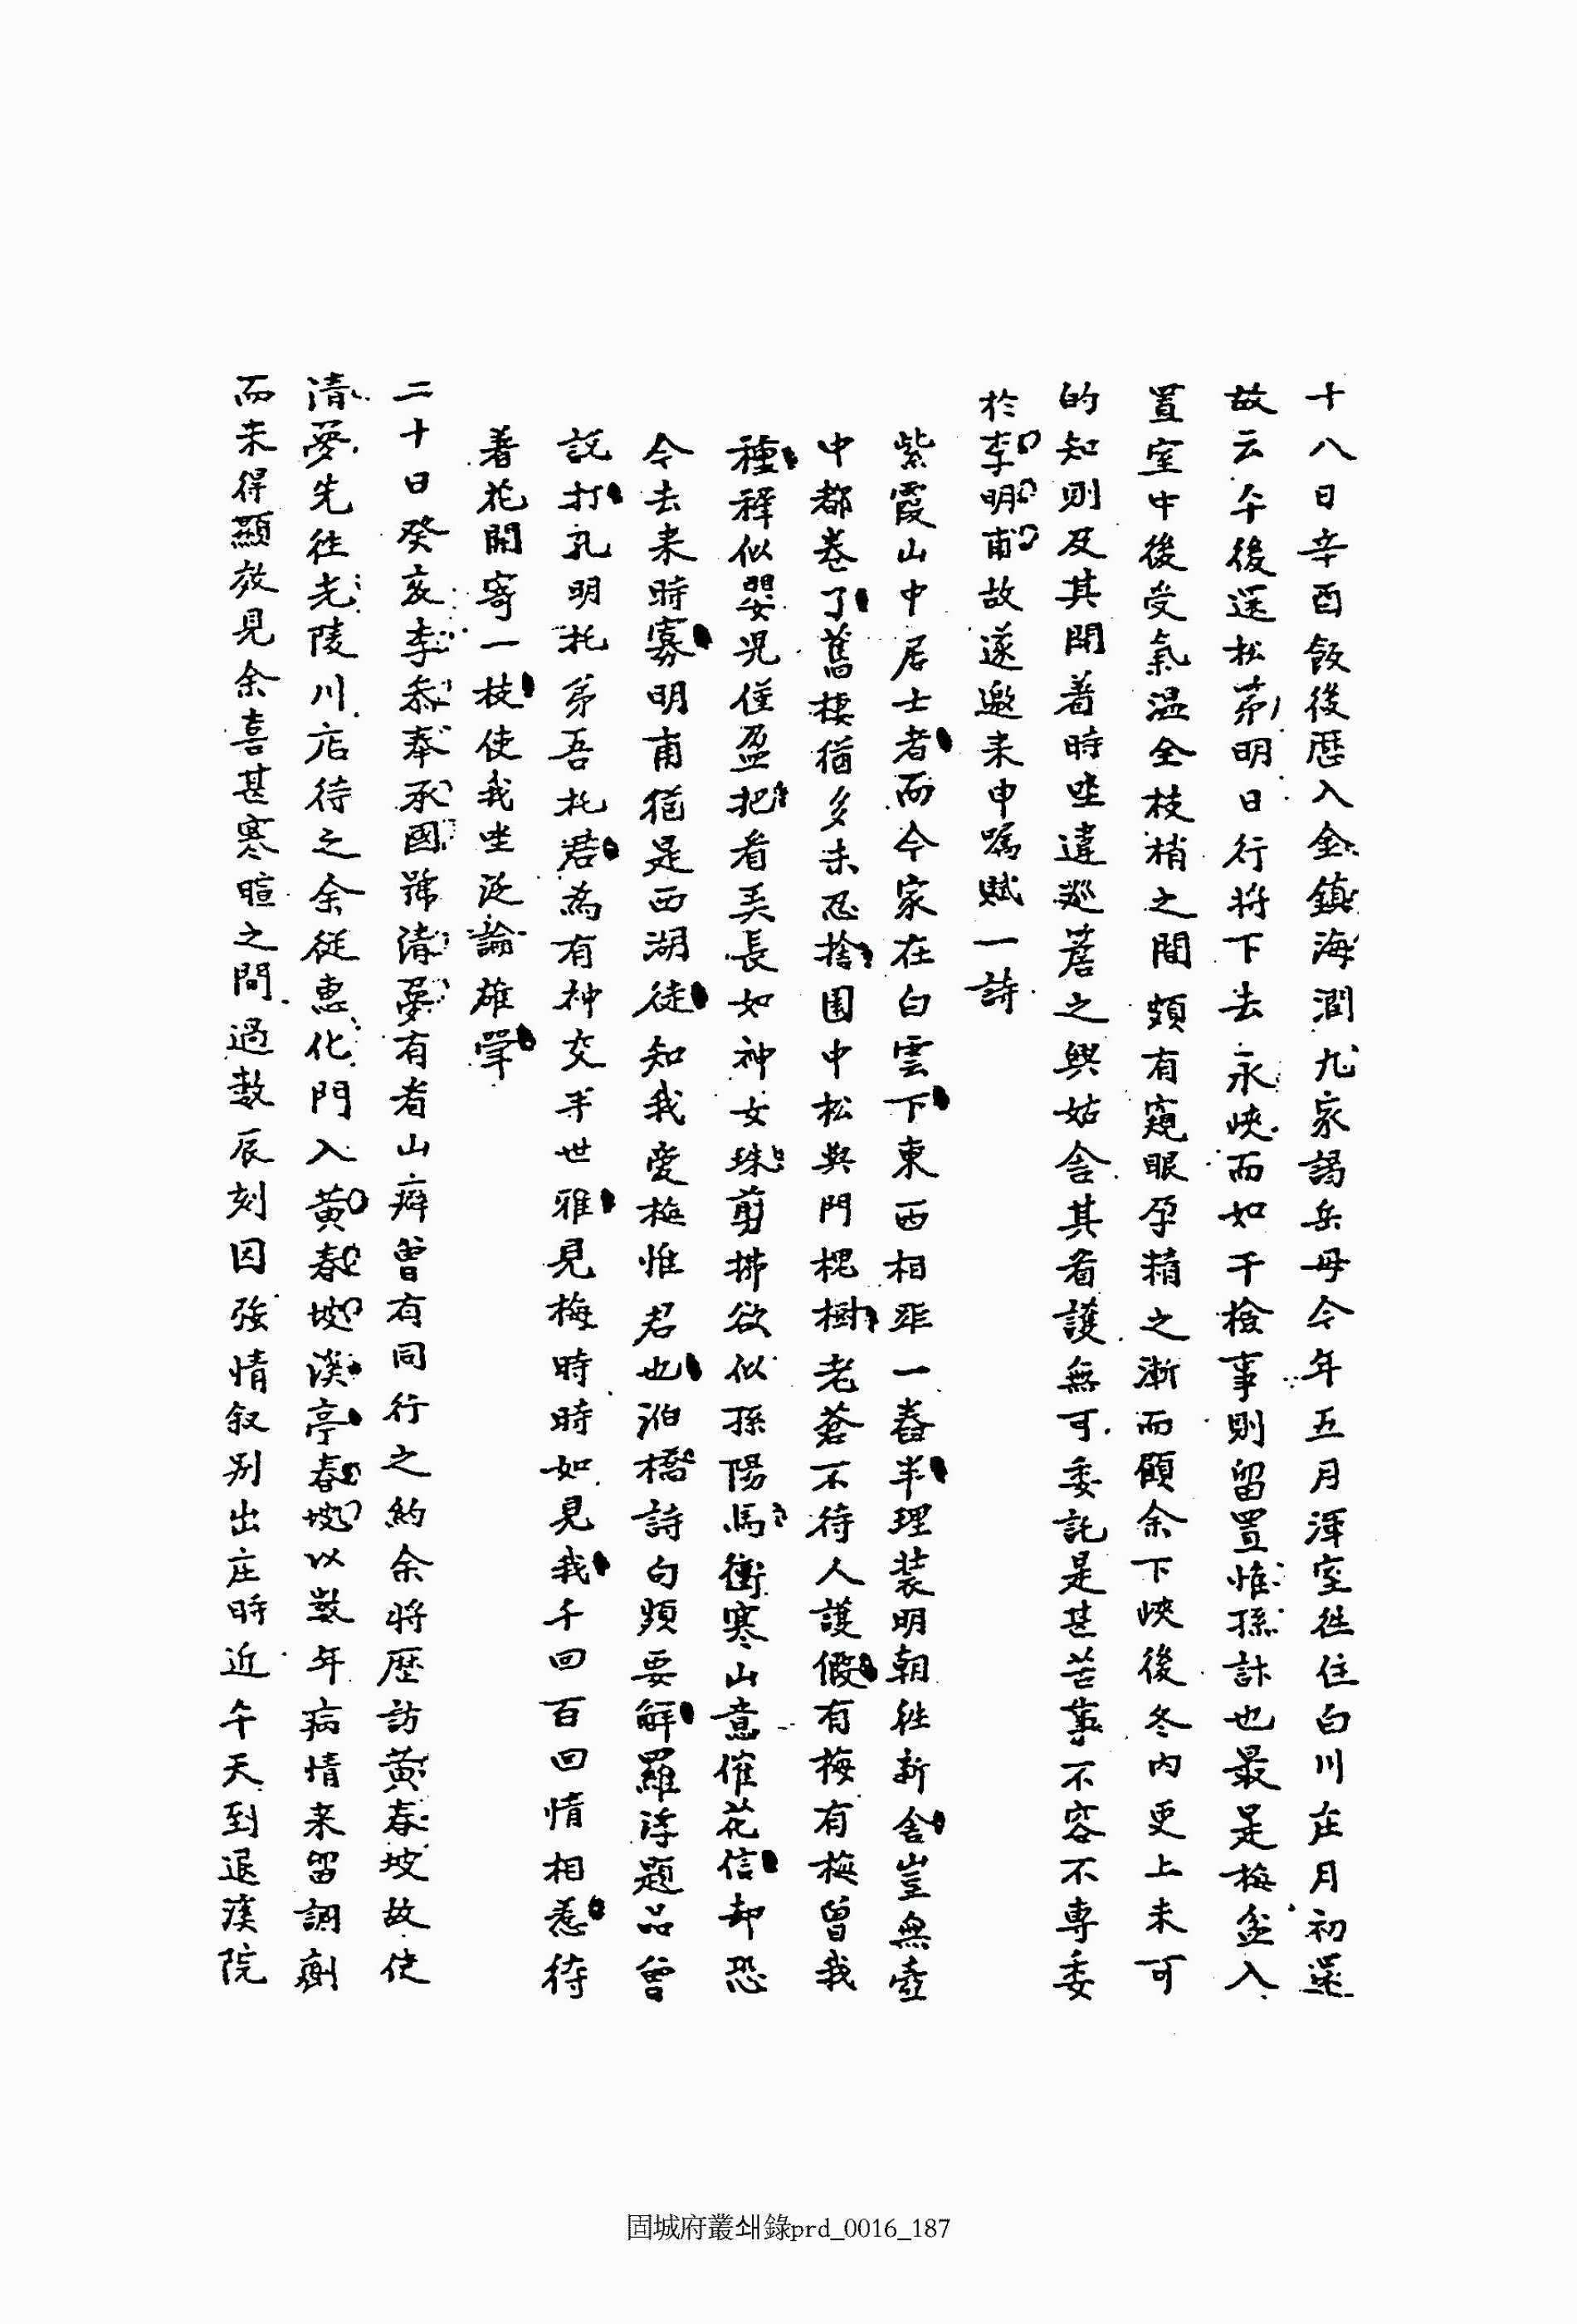 十八日辛酉飯後歷入金鎭海澗九家謁岳母今年五月渾室徃住白川庄月初還
故云午後還松茅明日行將下去永峽而如干檢事則留置惟孫計也最是梅盆入
置室中後受氣温全枝梢之間頗有窺眼孕精之漸而顧余下峽後冬內更上未可
的知則及其開着時坐違巡簷之興姑舍其看護無可委託是甚苦事不容不專委
於李明甫故遂邀来申囑賦一詩
紫霞山中居士者而今家在白雲下東西相距一舂半理裝明朝徃新舍豈無壺
中都卷了舊棲猶多未忍捨園中松與門槐樹老蒼不待人護假有梅有梅曾我
種穉似嬰児僅盈把看美長如神女珠剪拂欲似孫陽馬衝寒山意催花信却恐
今去来時寡明甫猶是西湖徒知我愛梅惟君也㶚橋詩句頻要解羅浮題品曾
説打孔明托弟吾托君為有神交半世雅見梅時時如見我千回百回情相惹待
着花開寄一枝使我坐泛論雄斝
二十日癸亥李參奉承國號淸夢有看山癖曾有同行之約余將歷訪黃春坡故使
清夢先徃光陵川店待之余從惠化門入黃春坡溪亭春坡以數年病情来留調劑
而未得顯效見余喜甚寒暄之間過數辰刻因強情叙別出庄時近午天到退溪院
固城府叢쇄錄prd_0016_187